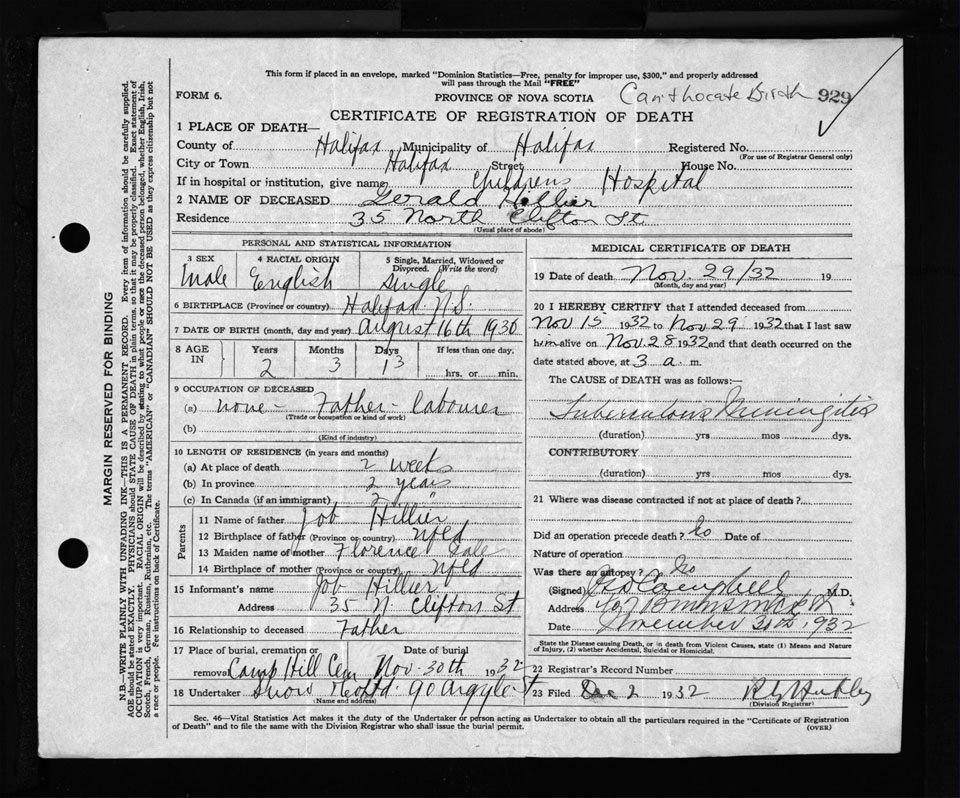 This form if placed in an envelope, marked "Dominion Statistics—Free, penalty for improper use, $300," and properly addressed
will pass through the Mail "FREE"
FORM 6.
PROVINCE OF NOVA SCOTIA
929
CERTIFICATE OF REGISTRATION OF DEATH
1 PLACE OF DEATH—
County of Halifax Municipality of Halifax Registered No.
(For use of Registrar General only)
City or Town Halifax Street House No.
If in hospital or institution, give name Childrens Hospital
2 NAME OF DECEASED Gerald Hillier
Residence 35 North Clifton St
(Usual place of abode)
PERSONAL AND STATISTICAL INFORMATION
3 SEX 4 RACIAL ORIGIN 5 Single, Married, Widowed or Divorced. (Write the word)
Male English Single
6 BIRTHPLACE (Province or country) Halifax N.S.
7 DATE OF BIRTH (month, day and year) August 16th 1930
8 AGE IN Years Months Days If less than one day,
2 3 13 hrs. or min.
9 OCCUPATION OF DECEASED
(a) none - Father - labourer
(Trade or occupation or kind of work)
(b)
(Kind of industry)
10 LENGTH OF RESIDENCE (in years and months)
(a) At place of death 2 weeks
(b) In province 2 years
(c) In Canada (if an immigrant) 2 "
Parents
11 Name of father Job Hillier
12 Birthplace of father (Province or country) Nfld
13 Maiden name of mother Florence
14 Birthplace of mother (Province or country) Nfld
15 Informant's name Job Hillier
Address 35 N. Clifton St
16 Relationship to deceased Father
17 Place of burial, cremation or removal Camp Hill Cem Date of burial Nov. 30th 1932
18 Undertaker Snow 90 Argyle St
(Name and address)
MEDICAL CERTIFICATE OF DEATH
19 Date of death Nov. 29/32 19
(Month, day and year)
20 I HEREBY CERTIFY that I attended deceased from
Nov 15 1932 to Nov 29 1932 that I last saw
him alive on Nov. 28 1932 and that death occurred on the
date stated above, at 3 a. m.
The CAUSE of DEATH was as follows:—
Tuberculous Meningitis
(duration) yrs mos dys.
CONTRIBUTORY
(duration) yrs. mos dys.
21 Where was disease contracted if not at place of death?
Did an operation precede death? No Date of
Nature of operation
Was there an autopsy? No
(Signed) Campbell M.D.
Address
Date November 1932
State the Disease causing Death, or in death from Violent Causes, state (1) Means and Nature
of Injury, (2) whether Accidental, Suicidal or Homicidal.
22 Registrar's Record Number
23 Filed Dec 2 1932
(Division Registrar)
Sec. 46—Vital Statistics Act makes it the duty of the Undertaker or person acting as Undertaker to obtain all the particulars required in the "Certificate of Registration
of Death" and to file the same with the Division Registrar who shall issue the burial permit. (OVER)
MARGIN RESERVED FOR BINDING
N.B.—WRITE PLAINLY WITH UNFADING INK—THIS IS A PERMANENT RECORD. Every item of information should be carefully supplied.
AGE should be stated EXACTLY. PHYSICIANS should state CAUSE OF DEATH in plain terms, so that it may be properly classified. Exact statement of
OCCUPATION is very important. RACIAL ORIGIN will be described by stating to what people or race the deceased person belonged, whether English, Irish,
Scotch, French, German, Russian, Ruthenian, etc. The terms "AMERICAN" or "CANADIAN" SHOULD NOT BE USED as they express citizenship but not
a race or people. Fee instructions on back of Certificate.